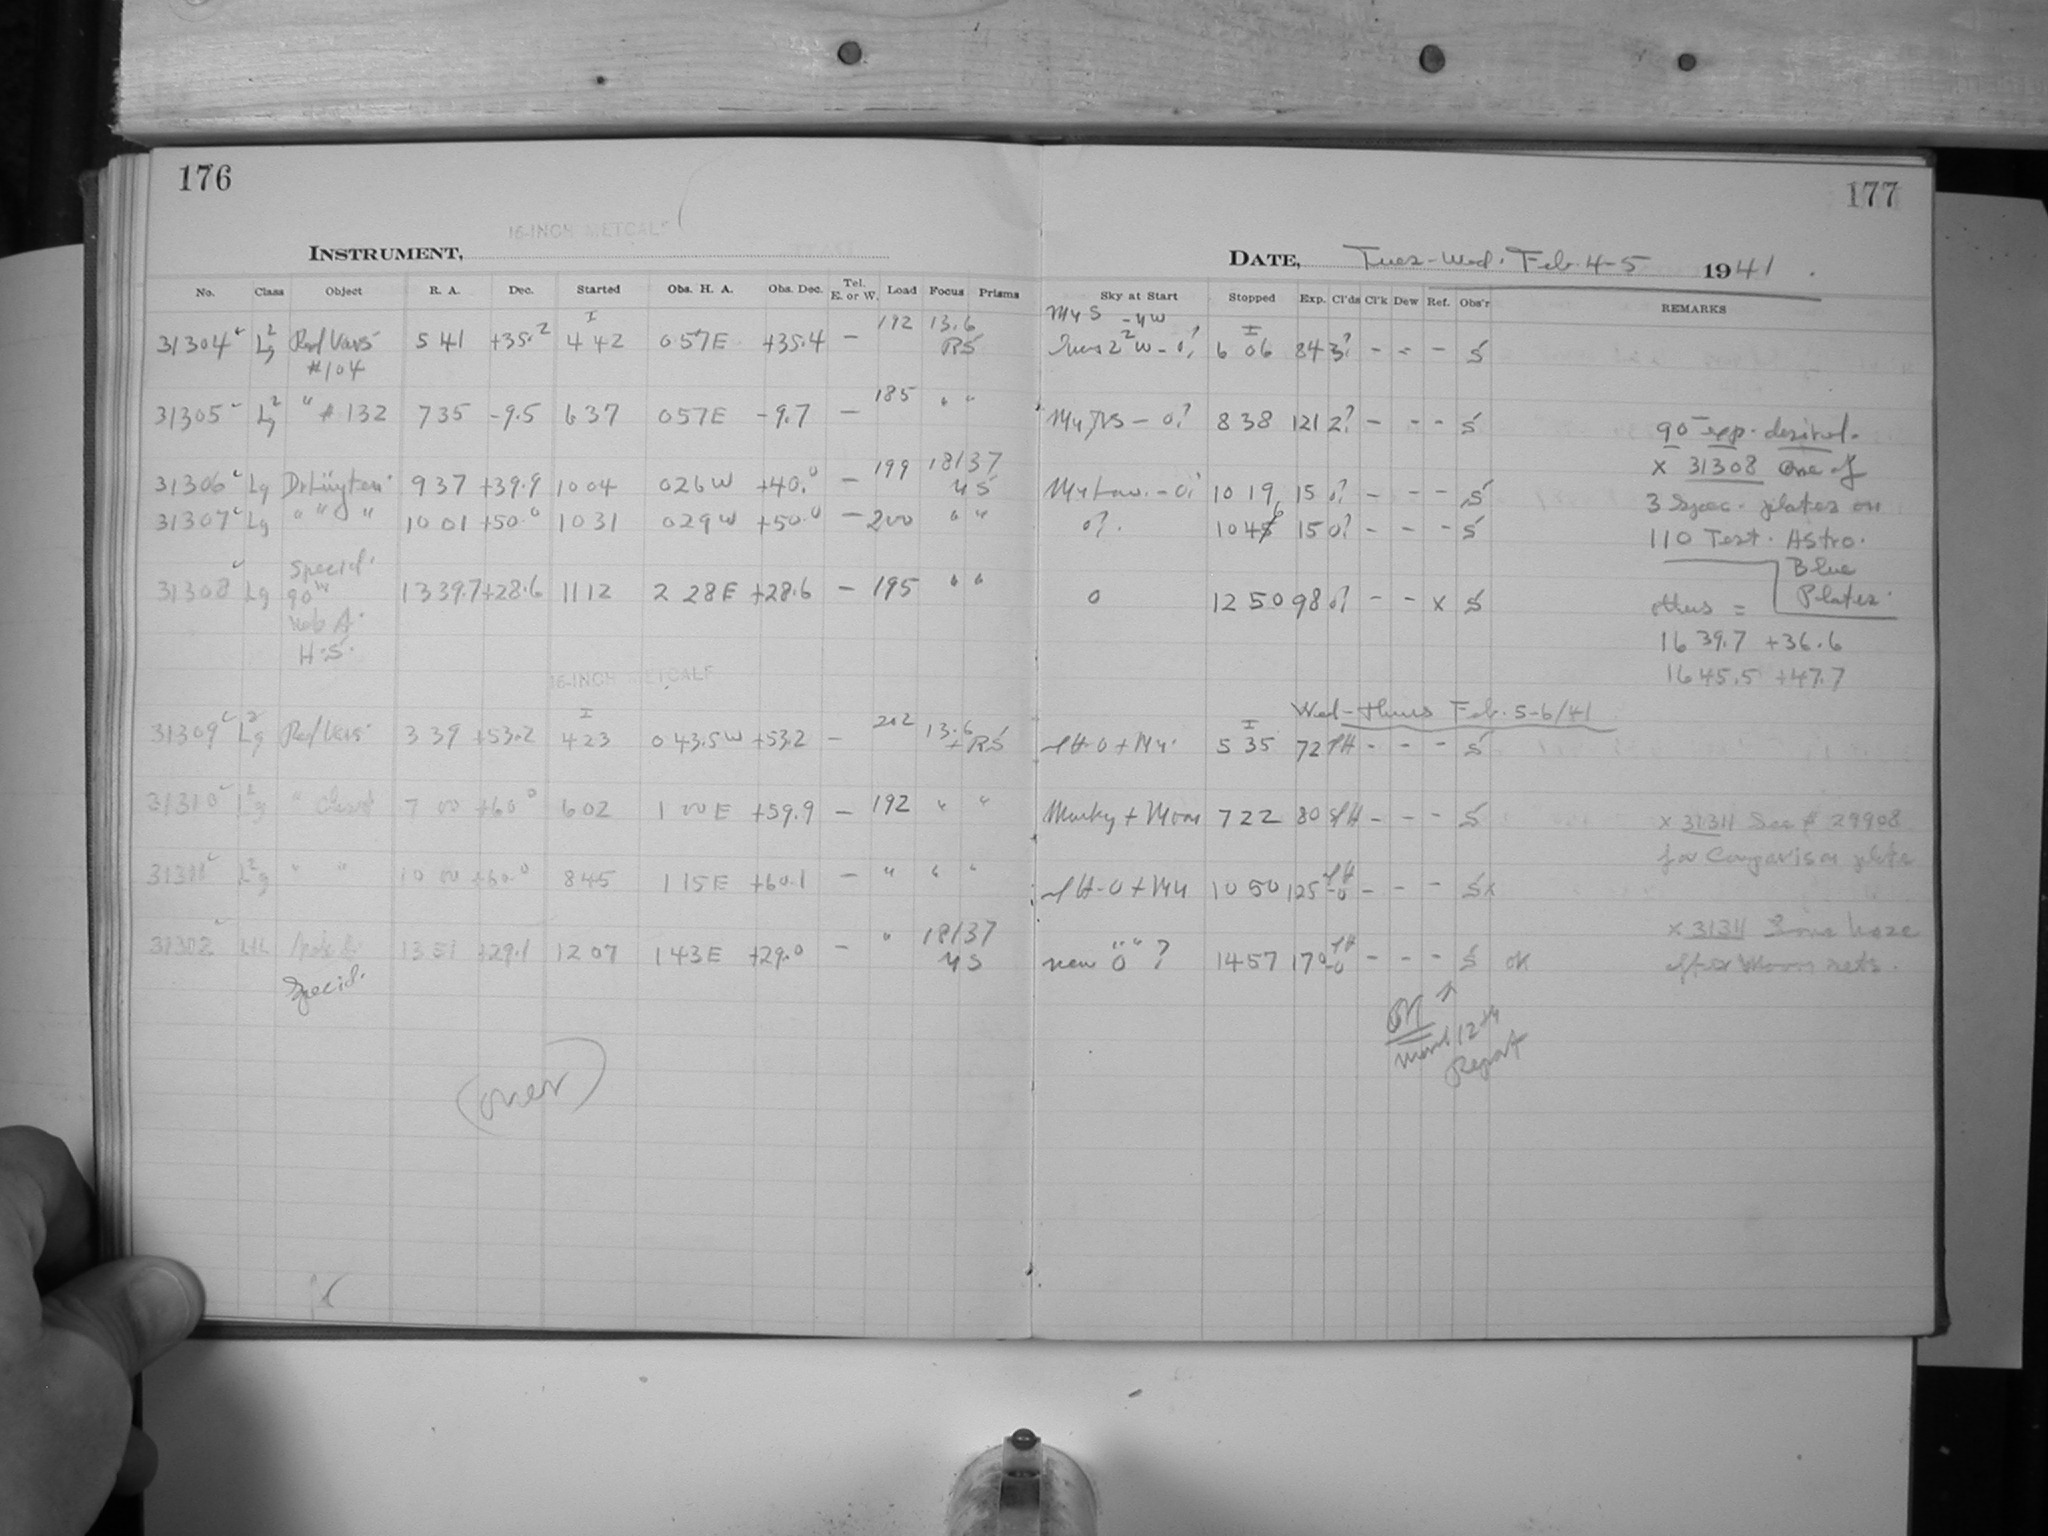 176
177
16-INCH METCALF
INSTRUMENT,
DATE, Tues-Wed. Feb. 4-5 1941.
No. Class Object R. A. Dec. Started Obs. H. A. Obs. Dec. Tel. E. or W. Load Focus Prisms Sky at Start Stopped Exp. Cl'ds Cl'k Dew Ref. Obs'r REMARKS
31304 Red Vars #104 5 41 +35.2 4 42 0 57 E +35.4 — 192 13.6 RS 6 06 84 3? - - - S
31305 " #132 7 35 -9.5 6 37 0 57 E -9.7 — 185 " " — 0? 8 38 121 2? - - - S
90 exp. desired.
31306 Lg 9 37 +39.9 10 04 0 26 W +40.0 — 199 18137 10 19 15 0? - - - S
x 31308 One of
31307 Lg " " " 10 01 +50.0 10 31 0 29 W +50.0 — 200 " " 0?. 15 0? - - - S
3 Spec. plates on
110 Test. Astro.
31308 Lg Special. 13 39.7 +28.6 11 12 2 28 E +28.6 — 195 " " 0 12 50 98 0? - - x S
Blue Plates.
H.S.
others =
16 39.7 +36.6
16 45.5 +47.7
16-INCH METCALF
Wed-Thurs Feb. 5-6/41
31309 Red Vars 3 39 +53.2 4 23 0 43.5 W +53.2 — 202 13.6 RS 5 35 72 - - - S
31310 " 7 00 +60.0 6 02 1 00 E +59.9 — 192 " " Murky + Moon 7 22 80 - - - S
x 31311 See # 29908
for Comparison plate
31311 " " 10 00 +60.0 8 45 1 15 E +60.1 — " " " 10 50 125 - - - S x
31302 13 51 +29.1 12 07 1 43 E +29.0 — " 18137 14 57 170 - - - S OK
Special.
x 31311 Some haze
after Moon sets.
OK
March 12th
Report
(over)